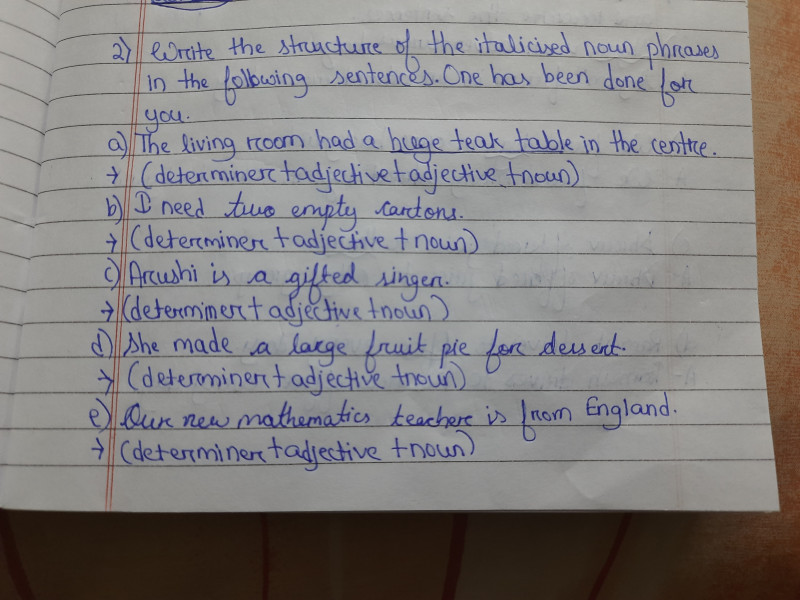 2) Write the structure of the italicised noun phrases
in the following sentences. One has been done for
you.
a) The living room had a huge teak table in the centre.
→ (determiner + adjective + adjective + noun)
b) I need two empty cartons.
→ (determiner + adjective + noun)
c) Arushi is a gifted singer.
→ (determiner + adjective + noun)
d) She made a large fruit pie for dessert.
→ (determiner + adjective + noun)
e) Our new mathematics teacher is from England.
→ (determiner + adjective + noun)